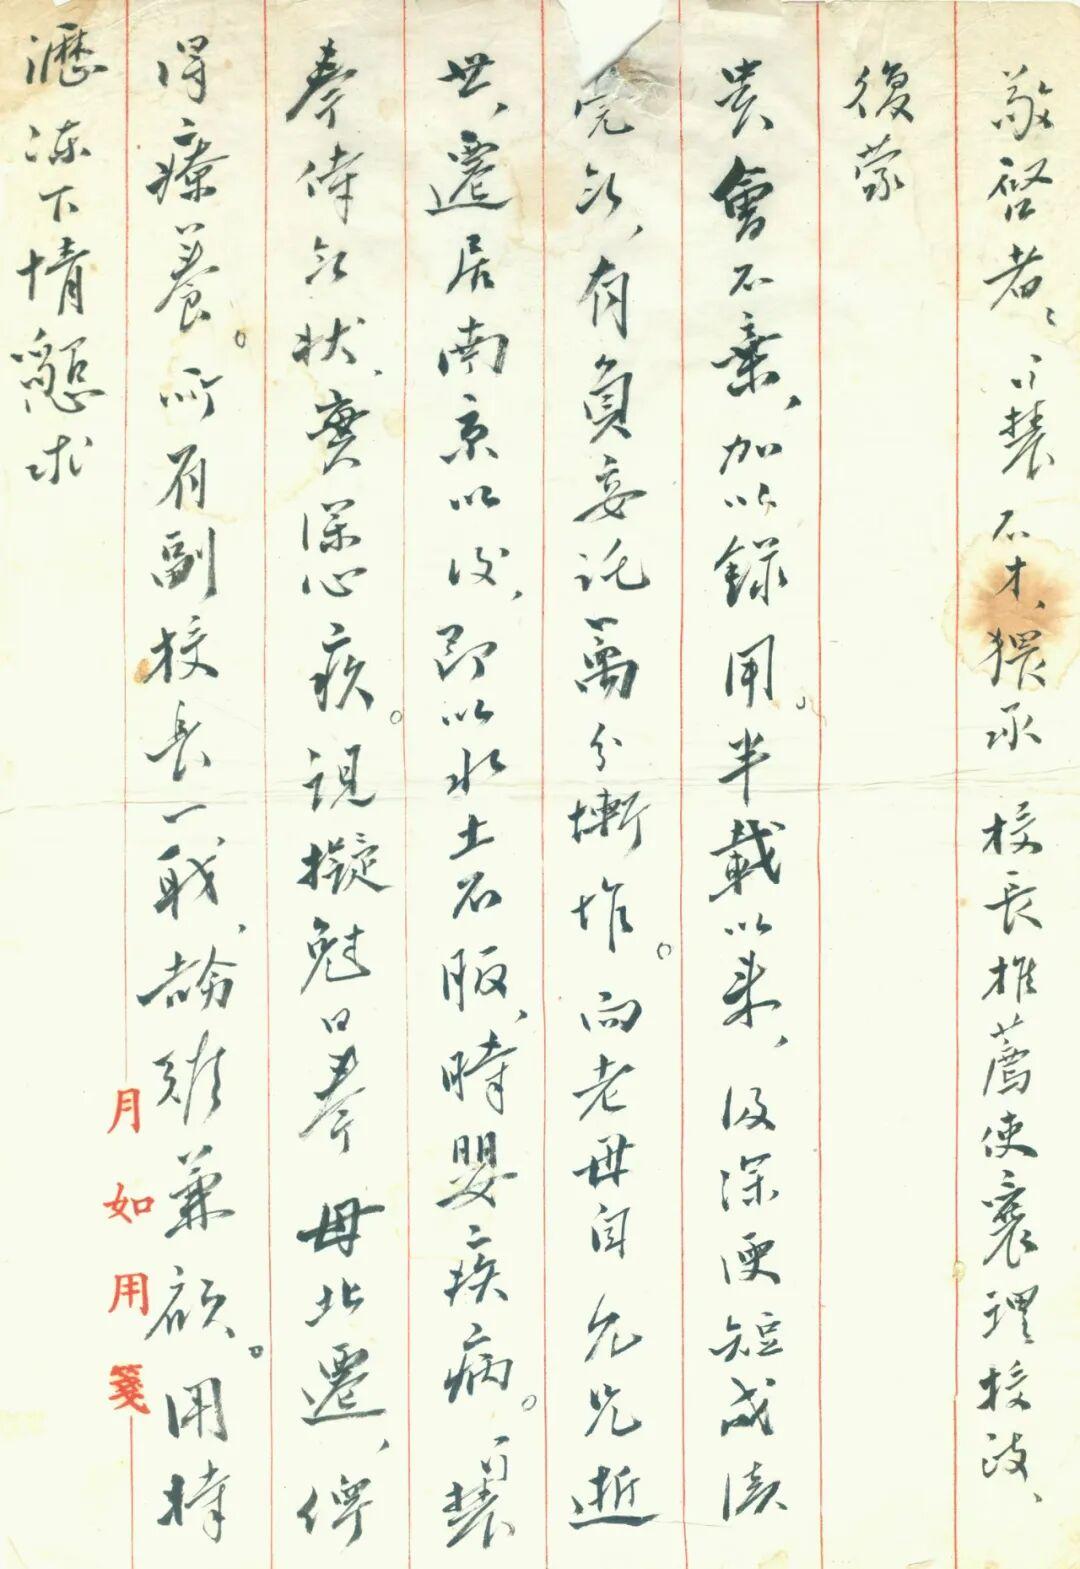 敬啓者、口慧不才、猥承 校長推薦使襄理校政、
復蒙
貴會不棄、加以錄用。半載以來、汲深綆短成績
完缺、有負委託萬分慚怍。向老母自允兄逝
世、遷居南京以後、即以水土不服、時嬰疾病。慧
奉侍無狀、實深心疚。現擬尅日奉 母北遷、俾
得療養。所有副校長一職、勢難兼顧。用特
瀝陳下情懇求
月如用箋